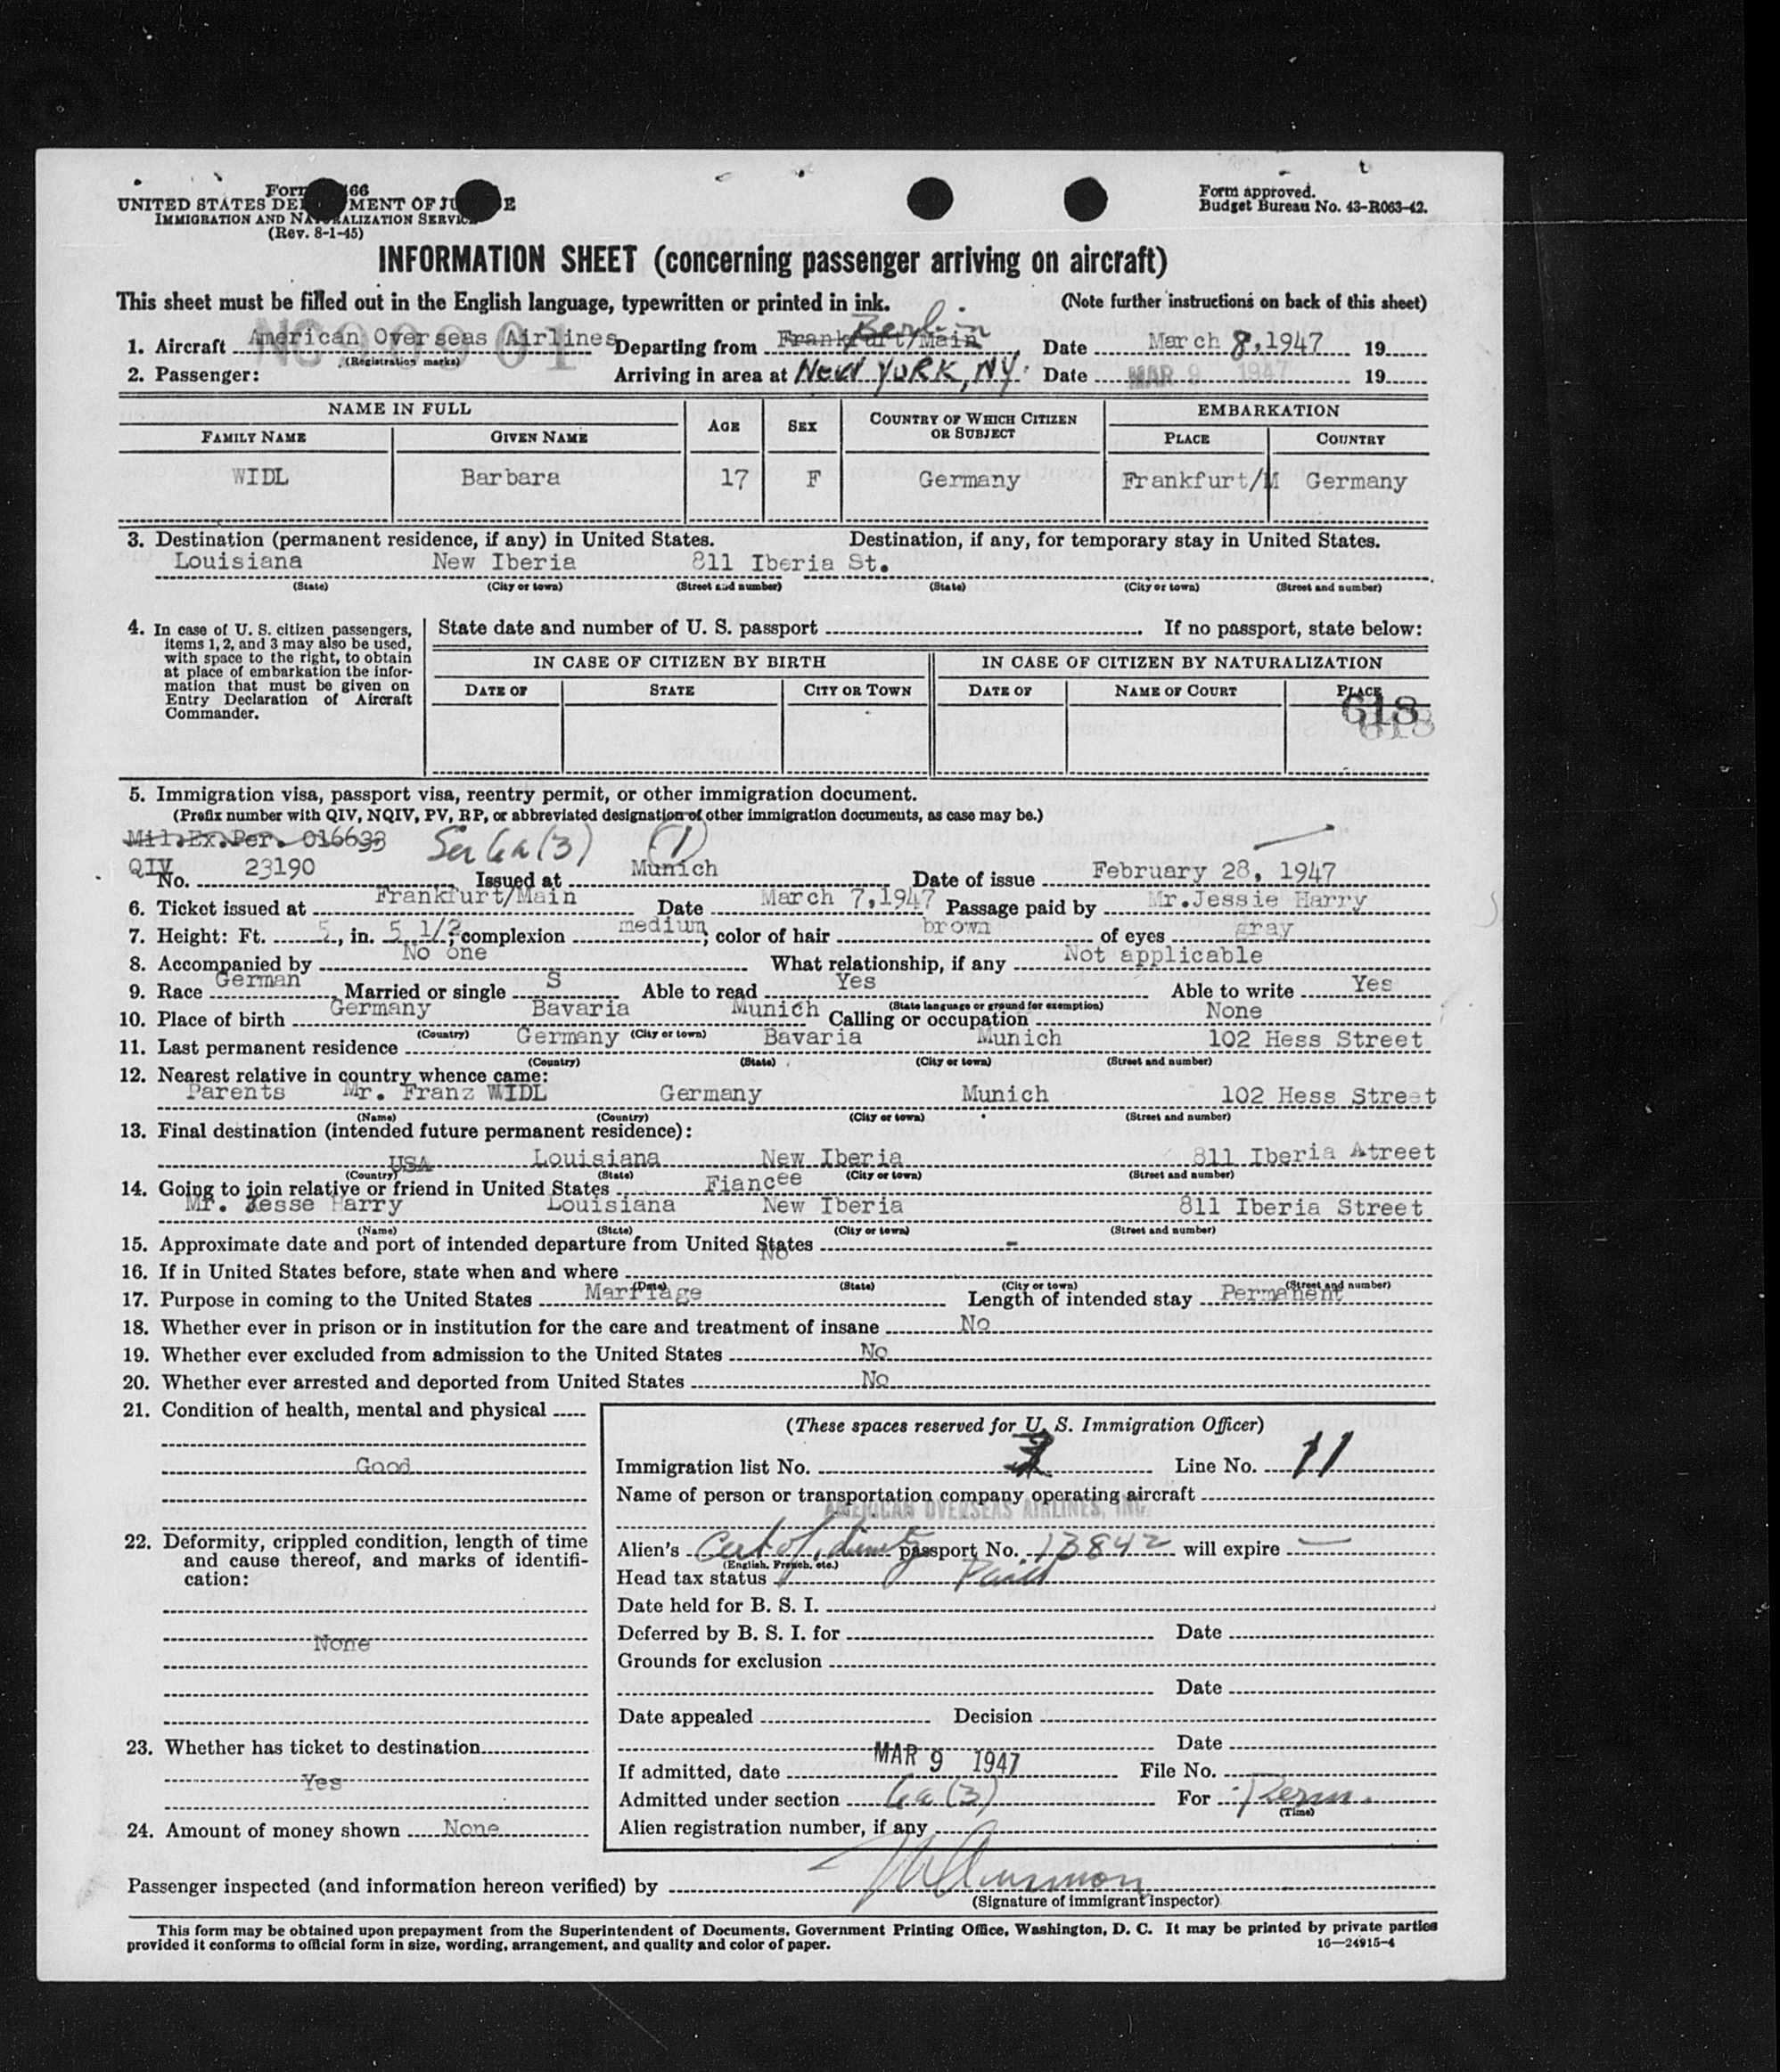 Form 66
UNITED STATES DE MENT OF JU E
IMMIGRATION AND NATURALIZATION SERVICE
(Rev. 8-1-45)
Form approved.
Budget Bureau No. 43-R063-42.
INFORMATION SHEET (concerning passenger arriving on aircraft)
This sheet must be filled out in the English language, typewritten or printed in ink. (Note further instructions on back of this sheet)
Berlin
1. Aircraft American Overseas Airlines Departing from Frankfurt/Main Date March 8, 1947 19
NC90901
(Registration marks)
2. Passenger: Arriving in area at NEW YORK, NY. Date MAR 9 1947 19
NAME IN FULL AGE SEX COUNTRY OF WHICH CITIZEN OR SUBJECT EMBARKATION
FAMILY NAME GIVEN NAME PLACE COUNTRY
WIDL Barbara 17 F Germany Frankfurt/M Germany
3. Destination (permanent residence, if any) in United States. Destination, if any, for temporary stay in United States.
Louisiana New Iberia 811 Iberia St.
(State) (City or town) (Street and number) (State) (City or town) (Street and number)
4. In case of U. S. citizen passengers, items 1, 2, and 3 may also be used, with space to the right, to obtain at place of embarkation the information that must be given on Entry Declaration of Aircraft Commander.
State date and number of U. S. passport If no passport, state below:
IN CASE OF CITIZEN BY BIRTH IN CASE OF CITIZEN BY NATURALIZATION
DATE OF STATE CITY OR TOWN DATE OF NAME OF COURT PLACE
618
618
5. Immigration visa, passport visa, reentry permit, or other immigration document.
(Prefix number with QIV, NQIV, PV, RP, or abbreviated designation of other immigration documents, as case may be.)
Mil.Ex.Per. 016633 Sec 6a(3) (1)
QIV No. 23190 Issued at Munich Date of issue February 28, 1947
6. Ticket issued at Frankfurt/Main Date March 7,1947 Passage paid by Mr.Jessie Harry
7. Height: Ft. 5, in. 5 1/2; complexion medium; color of hair brown of eyes gray
8. Accompanied by No one What relationship, if any Not applicable
9. Race German Married or single S Able to read Yes Able to write Yes
(State language or ground for exemption)
10. Place of birth Germany Bavaria Munich Calling or occupation None
(Country) (City or town)
11. Last permanent residence Germany Bavaria Munich 102 Hess Street
(Country) (State) (City or town) (Street and number)
12. Nearest relative in country whence came:
Parents Mr. Franz WIDL Germany Munich 102 Hess Street
(Name) (Country) (City or town) (Street and number)
13. Final destination (intended future permanent residence):
USA Louisiana New Iberia 811 Iberia Atreet
(Country) (State) (City or town) (Street and number)
14. Going to join relative or friend in United States Fiancee
Mr. Jesse Harry Louisiana New Iberia 811 Iberia Street
(Name) (State) (City or town) (Street and number)
15. Approximate date and port of intended departure from United States -
16. If in United States before, state when and where No
(Date) (State) (City or town) (Street and number)
17. Purpose in coming to the United States Marriage Length of intended stay Permanent
18. Whether ever in prison or in institution for the care and treatment of insane No
19. Whether ever excluded from admission to the United States No
20. Whether ever arrested and deported from United States No
21. Condition of health, mental and physical
Good
22. Deformity, crippled condition, length of time and cause thereof, and marks of identification:
None
23. Whether has ticket to destination
Yes
24. Amount of money shown None
(These spaces reserved for U. S. Immigration Officer)
Immigration list No. Line No. 11
Name of person or transportation company operating aircraft
AMERICAN OVERSEAS AIRLINES, INC.
Alien's Cert of identity passport No. 13842 will expire —
(English, French, etc.)
Head tax status Paid
Date held for B. S. I.
Deferred by B. S. I. for Date
Grounds for exclusion
Date
Date appealed Decision
Date
If admitted, date MAR 9 1947 File No.
Admitted under section 6a(3) For Perm.
(Time)
Alien registration number, if any
Passenger inspected (and information hereon verified) by
(Signature of immigrant inspector)
This form may be obtained upon prepayment from the Superintendent of Documents, Government Printing Office, Washington, D. C. It may be printed by private parties
provided it conforms to official form in size, wording, arrangement, and quality and color of paper. 16—24915-4